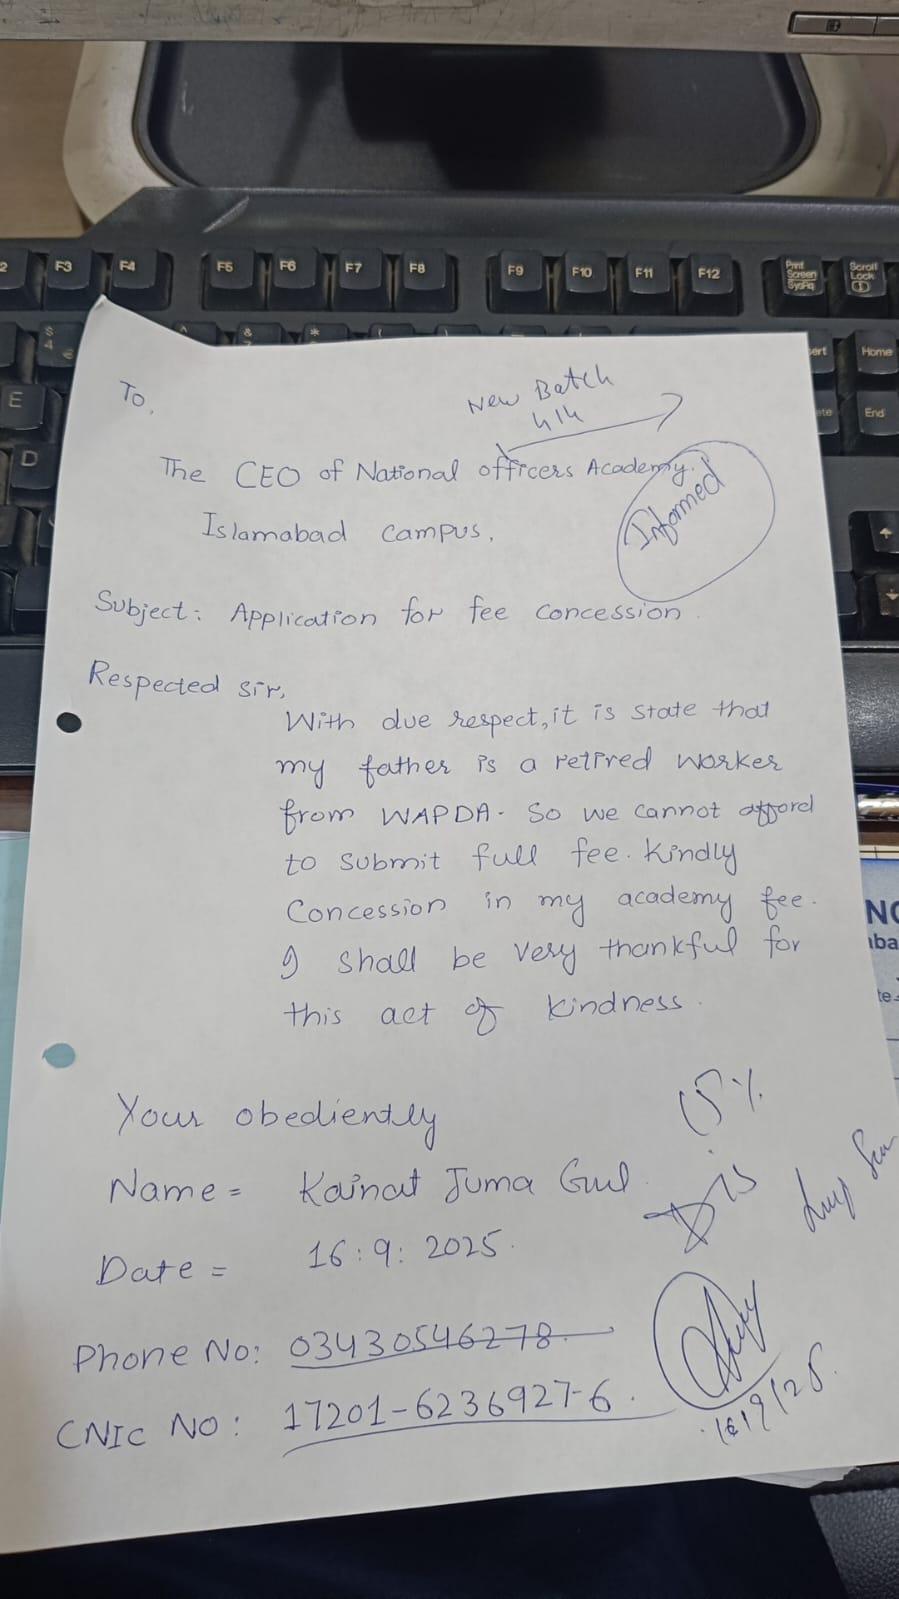 F3 F4 F5 F6 F7 F8 F9 F10 F11 F12 Print Screen SysRq Scroll Lock
$ 4 € & * (
Home
E
End
D
New Batch
414
To,
The CEO of National officers Academy.
Informed
Islamabad campus,
Subject: Application for fee concession.
Respected sir,
With due respect, it is state that
my father is a retired worker
from WAPDA. So we cannot afford
to submit full fee. Kindly
Concession in my academy fee.
I shall be very thankful for
this act of kindness.
Your obediently
15%
Name = Kainat Juma Gul
Dis
Date = 16:9:2025.
Phone No: 03430546278
CNIC NO: 17201-6236927-6.
16/9/25